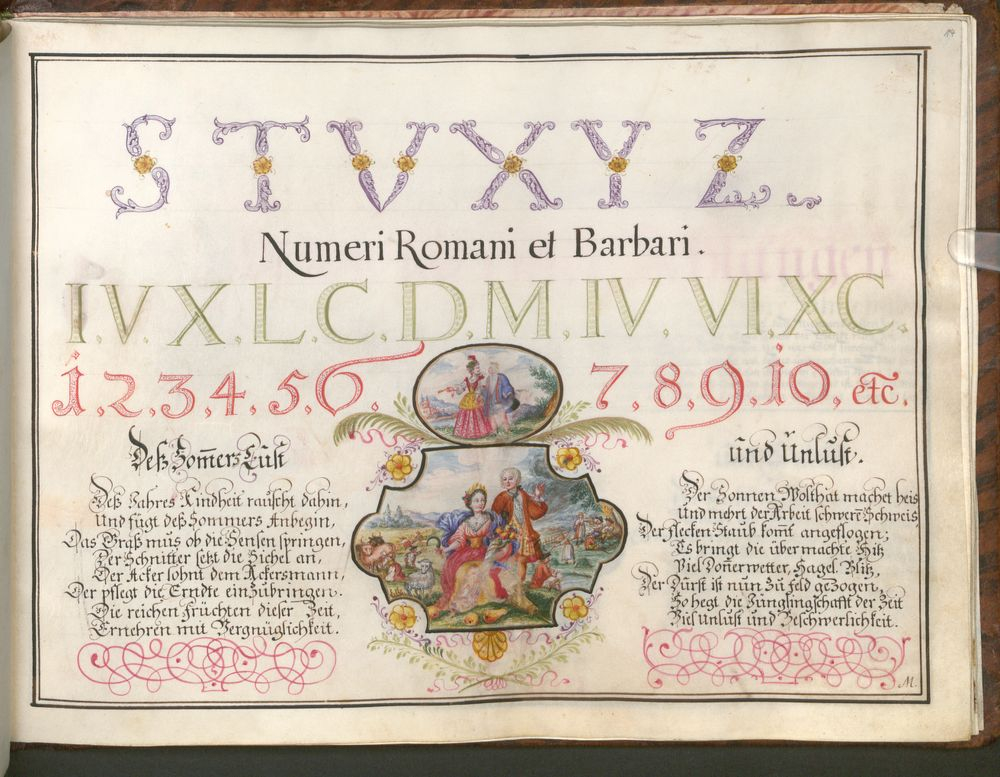 S T V X Y Z.
Numeri Romani et Barbari.
I. V. X. L. C. D. M. IV. VI. XC.
1. 2. 3. 4. 5. 6. 7. 8. 9. 10. etc.
Deß Som̄ers Lust
Deß Jahres Kindheit rauscht dahin,
Und fügt deß Sommers Anbegin,
Das Graß muß ob die Sensen springen,
Der Schnitter setzt die Sichel an,
Der Acker lohnt dem Ackersmann,
Der pflegt die Erndte einzubringen.
Die reichen Früchten dieser Zeit,
Ernehren mit Vergnüglichkeit.
und Unlust.
Der Sonnen Wolthat machet heis
Und mehrt der Arbeit schwern̄ Schweis
Der flecken Staub kom̄t angeflogen;
Es bringt die über machte Hitz
Viel Don̄erwetter, Hagel, Blitz,
Der Durst ist nun zu feld gezogen,
So hegt die Jünglingschafft der Zeit
Viel unlust und Beschwerlichkeit.
M.